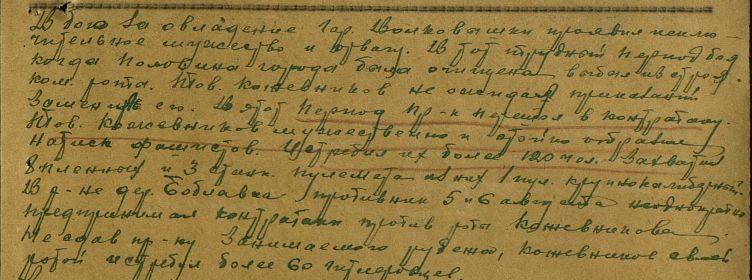 В бою за овладение гор. Волковышки проявил исклю-
чительное мужество и отвагу. В тот трудный период боя
когда половина города была очищена выбыл из строя
ком. роты. Тов. Кожевников не ожидая приказания
заменил его. В этот период пр-к перешел в контратаку.
Тов. Кожевников мужественно и стойко отбрасывал
натиск фашистов. Истребил их более 120 чел. Захватил
8 пленных и 3 станк. пулемета из них 1 пул. крупнокалиберный.
В р-не дер. противник 5 и 6 августа неоднократно
предпринимал контратаки против роты Кожевникова
Не сдав пр-ку занимаемого рубежа, Кожевников с своей
ротой истребил более 60 гитлеровцев.